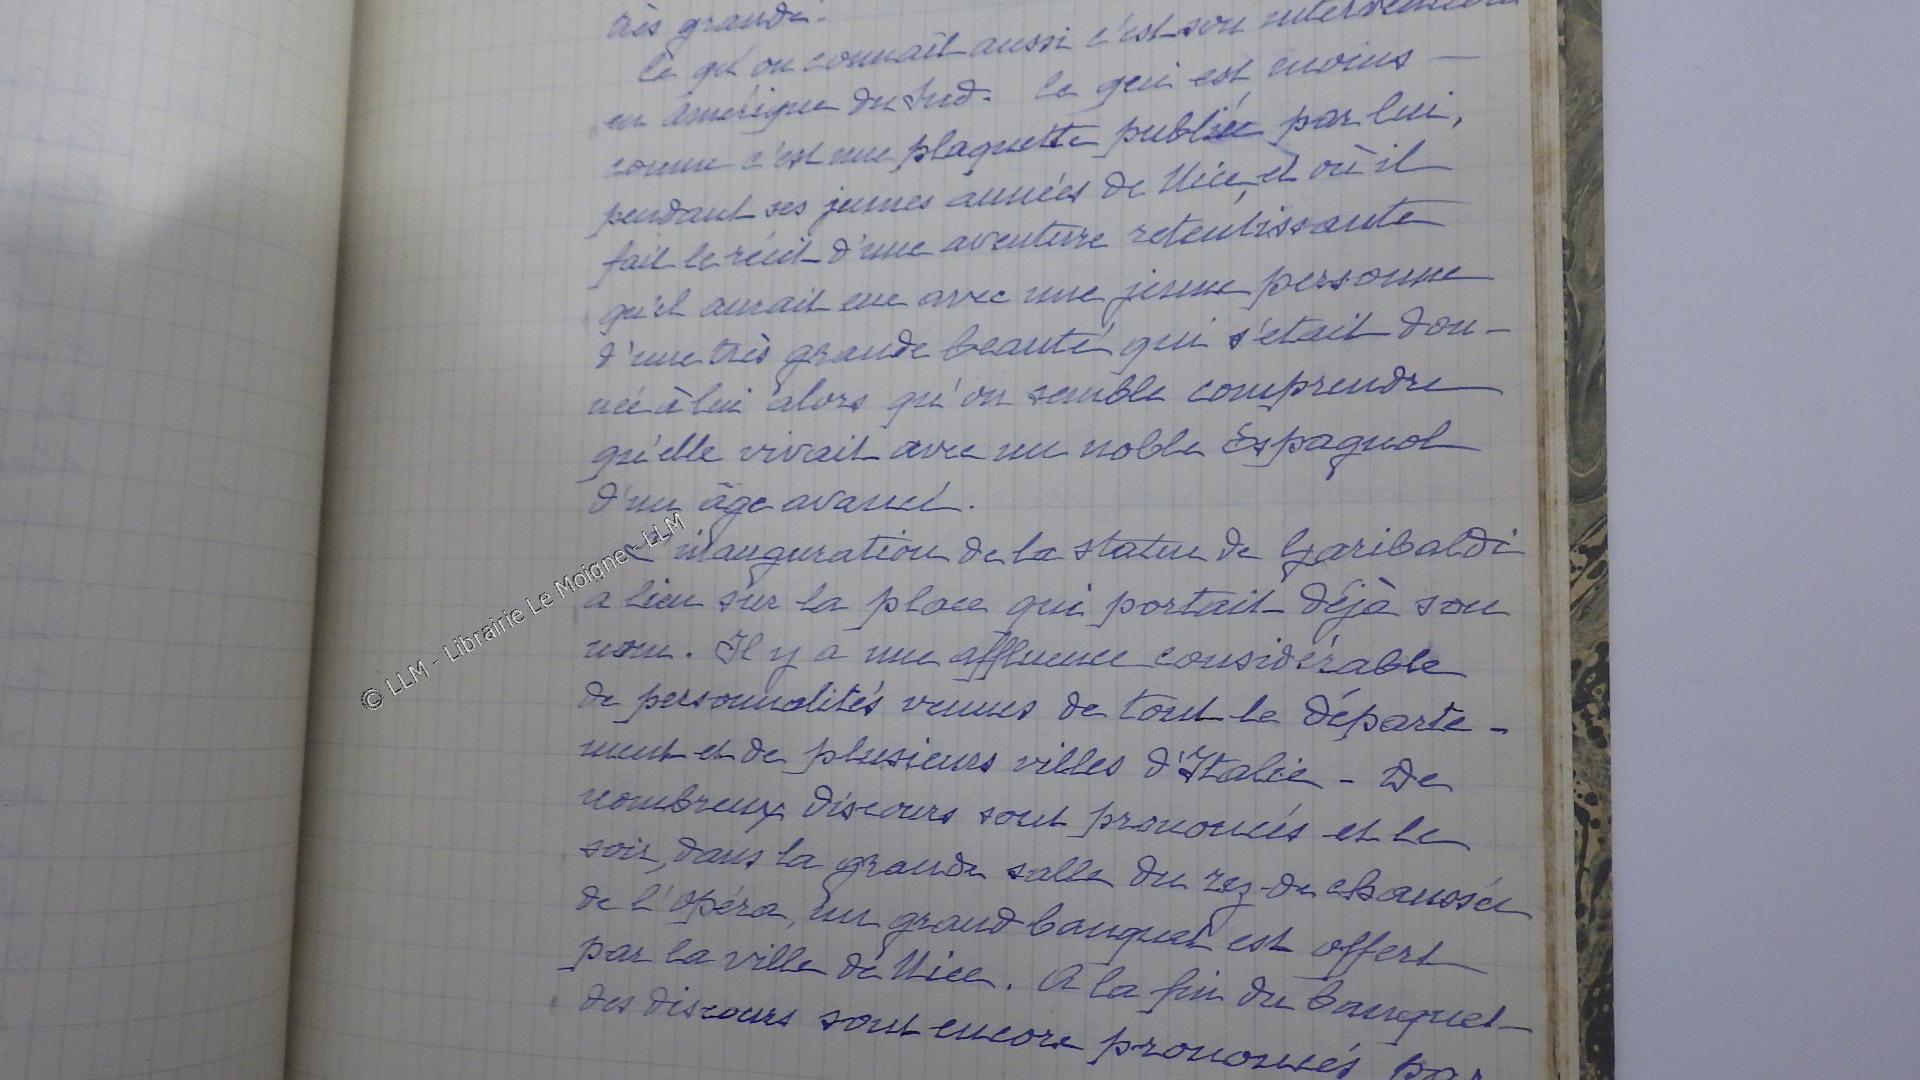 très grande.
Ce qu'on connaît aussi c'est son intervention
en Amérique du Sud. Ce qui est moins -
connu c'est une plaquette publiée par lui,
pendant ses jeunes années de Nice, et où il
fait le récit d'une aventure retentissante
qu'il aurait eue avec une jeune personne
d'une très grande beauté qui s'était don-
née à lui alors qu'on semble comprendre
qu'elle vivait avec un noble Espagnol
d'un âge avancé.
L'inauguration de la statue de Garibaldi
a lieu sur la place qui portait déjà son
nom. Il y a une affluence considérable
de personnalités venues de tout le départe-
ment et de plusieurs villes d'Italie - De
nombreux discours sont prononcés et le
soir, dans la grande salle du rez-de chaussée
de l'Opéra, un grand banquet est offert
par la ville de Nice. A la fin du banquet
des discours sont encore prononcés par
© LLM - Librairie Le Moigne - LLM